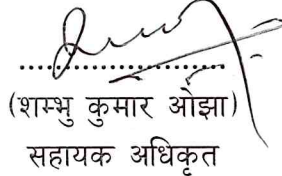 ....................
(शम्भु कुमार ओझा)
सहायक अधिकृत